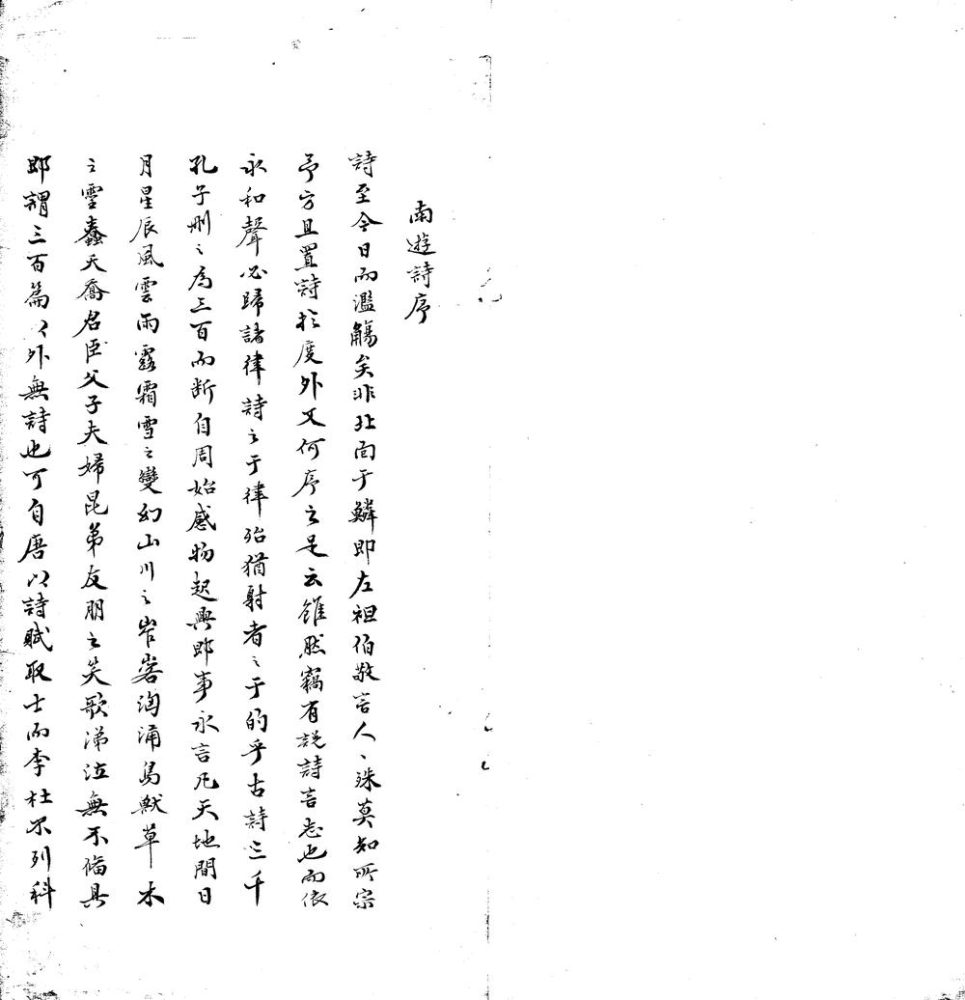 南遊詩序
詩至今日而濫觴矣非北面于鱗即左袒伯敬言人〻殊莫知所宗
予方且置詩於度外又何序之足云雖然竊有說詩言志也而依
永和聲必歸諸律詩之于律殆猶射者之于的乎古詩三千
孔子刪之為三百而斷自周始感物起興即事永言凡天地間日
月星辰風雲雨露霜雪之變幻山川之岝峉洶涌鳥獸草木
之靈蠢夭喬君臣父子夫婦昆弟友朋之笑歌涕泣無不備具
即謂三百篇〻外無詩也可自唐以詩賦取士而李杜不列科